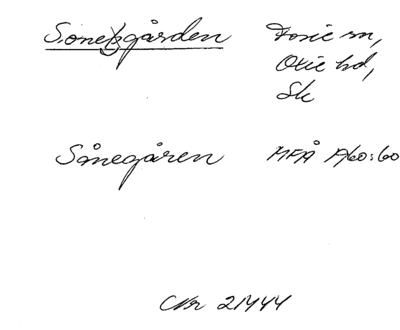 Sonekgården Fosie sn,
Oxie hd,
Sk
Sånegåren MFÅ 1960:60
CNr 21444